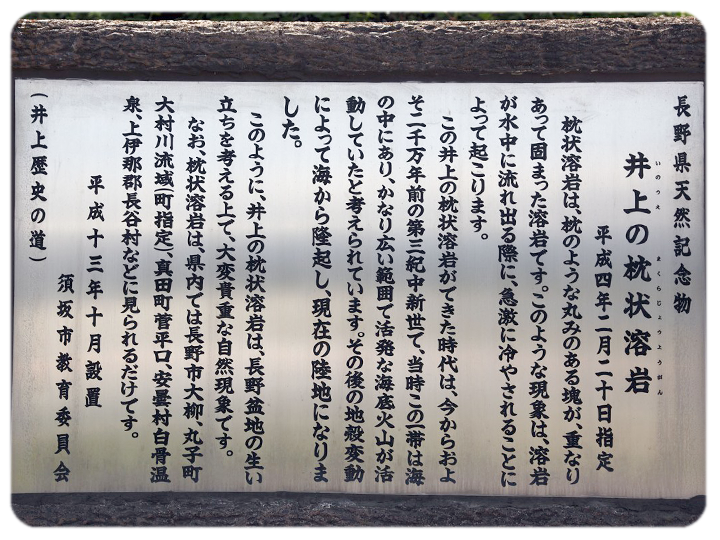 長野県天然記念物
井上の枕状溶岩
いのうえ まくらじょうようがん
平成四年二月二十日指定
枕状溶岩は、枕のような丸みのある塊が、重なり
あって固まった溶岩です。このような現象は、溶岩
が水中に流れ出る際に、急激に冷やされることに
よって起こります。
この井上の枕状溶岩ができた時代は、今からおよ
そ二千万年前の第三紀中新世で、当時この一帯は海
の中にあり、かなり広い範囲で活発な海底火山が活
動していたと考えられています。その後の地殻変動
によって海から隆起し、現在の陸地になりま
した。
このように、井上の枕状溶岩は、長野盆地の生い
立ちを考える上で、大変貴重な自然現象です。
なお、枕状溶岩は、県内では長野市大柳、丸子町
大村川流域(町指定)、真田町菅平口、安曇村白骨温
泉、上伊那郡長谷村などに見られるだけです。
平成十三年十月設置
須坂市教育委員会
(井上歴史の道)